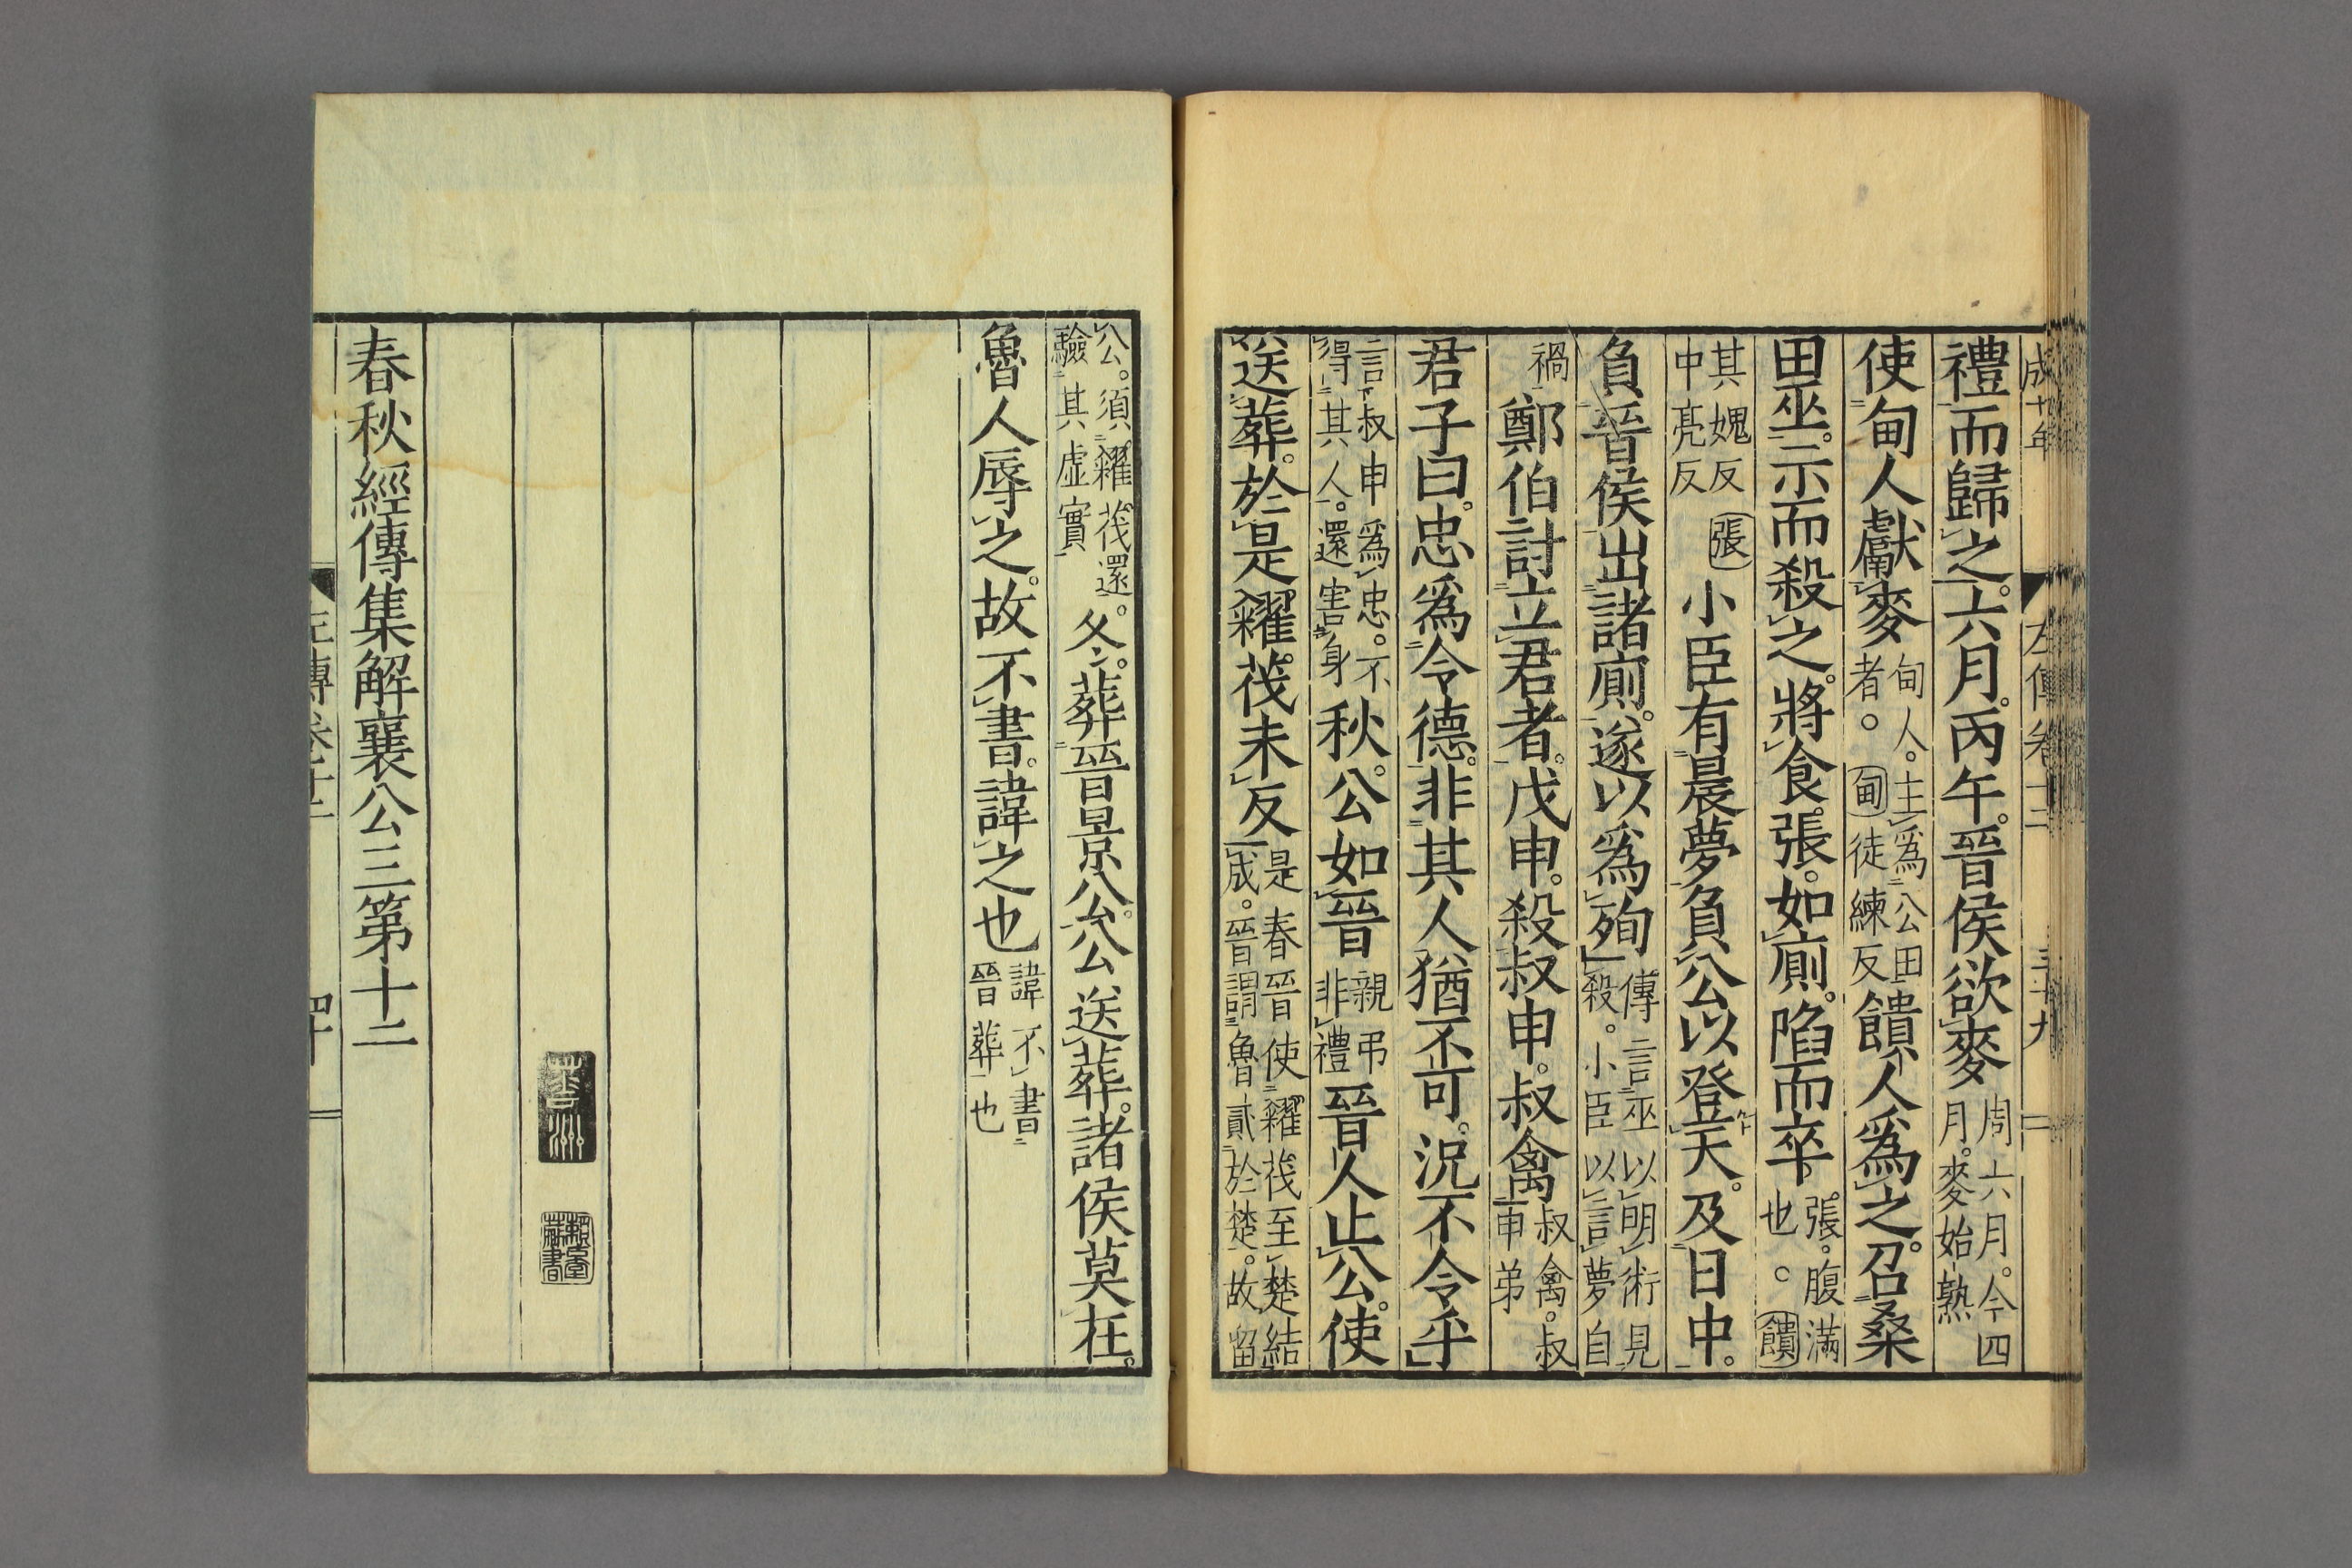 成十年 左傳卷十二 三十九
禮而歸之六月。丙午。晉侯欲麥周六月。今四月。麥始熟
使甸人獻麥甸人。主爲公田者。甸徒練反饋人爲之。召桑
田巫。示而殺之。將食。張。如廁。陷而卒。張。腹滿也。饋
其媿反張中亮反小臣有晨夢負公以登天。及日中。
負晉侯出諸廁。遂以爲殉傳言巫以明術見殺。小臣以言夢自
禍鄭伯討立君者。戊申。殺叔申。叔禽叔禽。叔申弟
君子曰。忠爲令德。非其人猶不可。況不令乎
言叔申爲忠。不得其人。還害身秋。公如晉親弔非禮晉人止公。使
送葬。於是糴茷未反是春晉使糴茷至楚結成。晉謂魯貳於楚。故留
公。須糴茷還。驗其虛實冬。葬晉景公。公送葬。諸侯莫在。
魯人辱之。故不書。諱之也諱不書晉葬也
春秋經傳集解襄公三第十二
左傳卷十二 四十